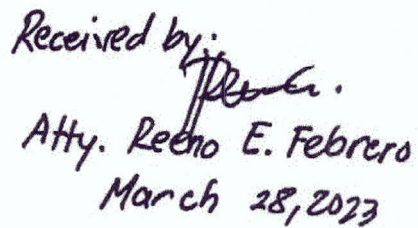 Received by:
Atty. Reeno E. Febrero
March 28, 2023